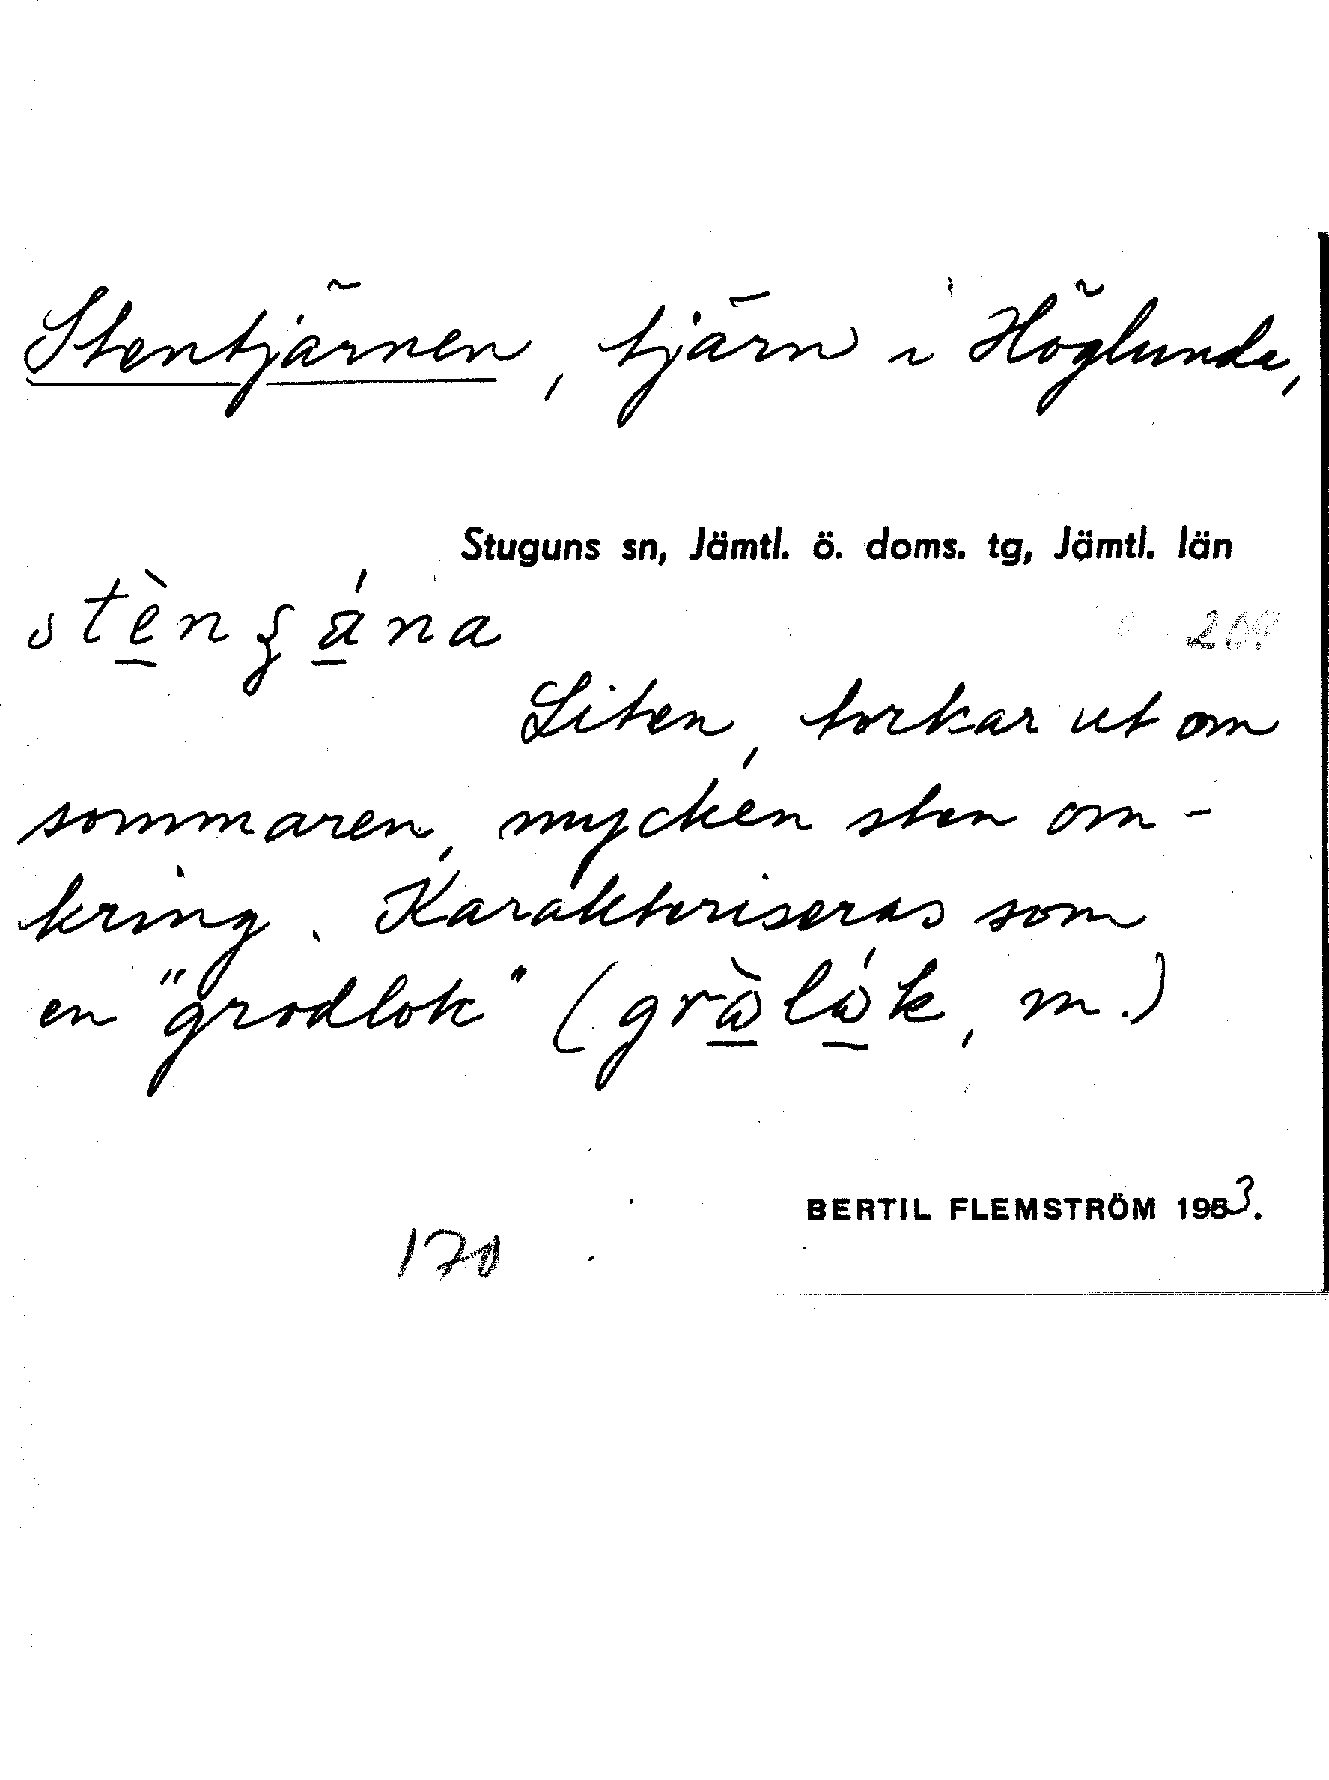 Stentjärnen, tjärn i Höglunda,
Stuguns sn, Jämtl. ö. doms. tg, Jämtl. län
Liten, torkar ut om
sommaren, mycken sten om-
kring. Karaktäriseras som
en "grodlok" (          , m.)
BERTIL FLEMSTRÖM 1953.
170